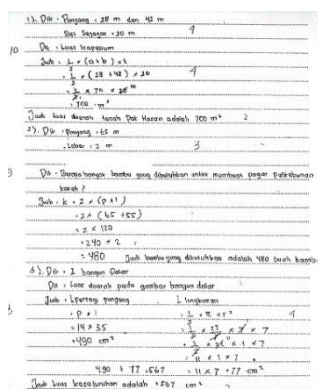 1). Dik : Panjang : 28 m dan 42 m
Sisi Sejajar : 20 m 4
10 Dit : Luas trapesium
Jwb : 1/2 × (a+b) × t
: 1/2 × (28 + 42) × 20 4
: 1/2 × 70 × 20 10
: 700 m²
Jadi luas daerah tanah Pak Hasan adalah 700 m² 2
2). Dik : Panjang : 65 m
Lebar : 2 m 3
Dit : Berapa banyak bambu yang dibutuhkan untuk membuat pagar
Jwb : k : 2 × (p+l)
: 2 × (65 + 55)
: 2 × 120
: 240 × 2
: 480 Jadi bambu yang dibutuhkan adalah 480 buah bambu
3). Dik : 2 bangun Datar
Dit : Luas daerah pada gambar bangun datar
Jwb : L persegi panjang L lingkaran
: p × l : 1/2 × π × r²
: 14 × 35
: 490 cm²
: 11 × 1 × 7
490 + 77 : 567 : 11 × 7 : 77 cm²
Jadi luas keseluruhan adalah : 567 cm²